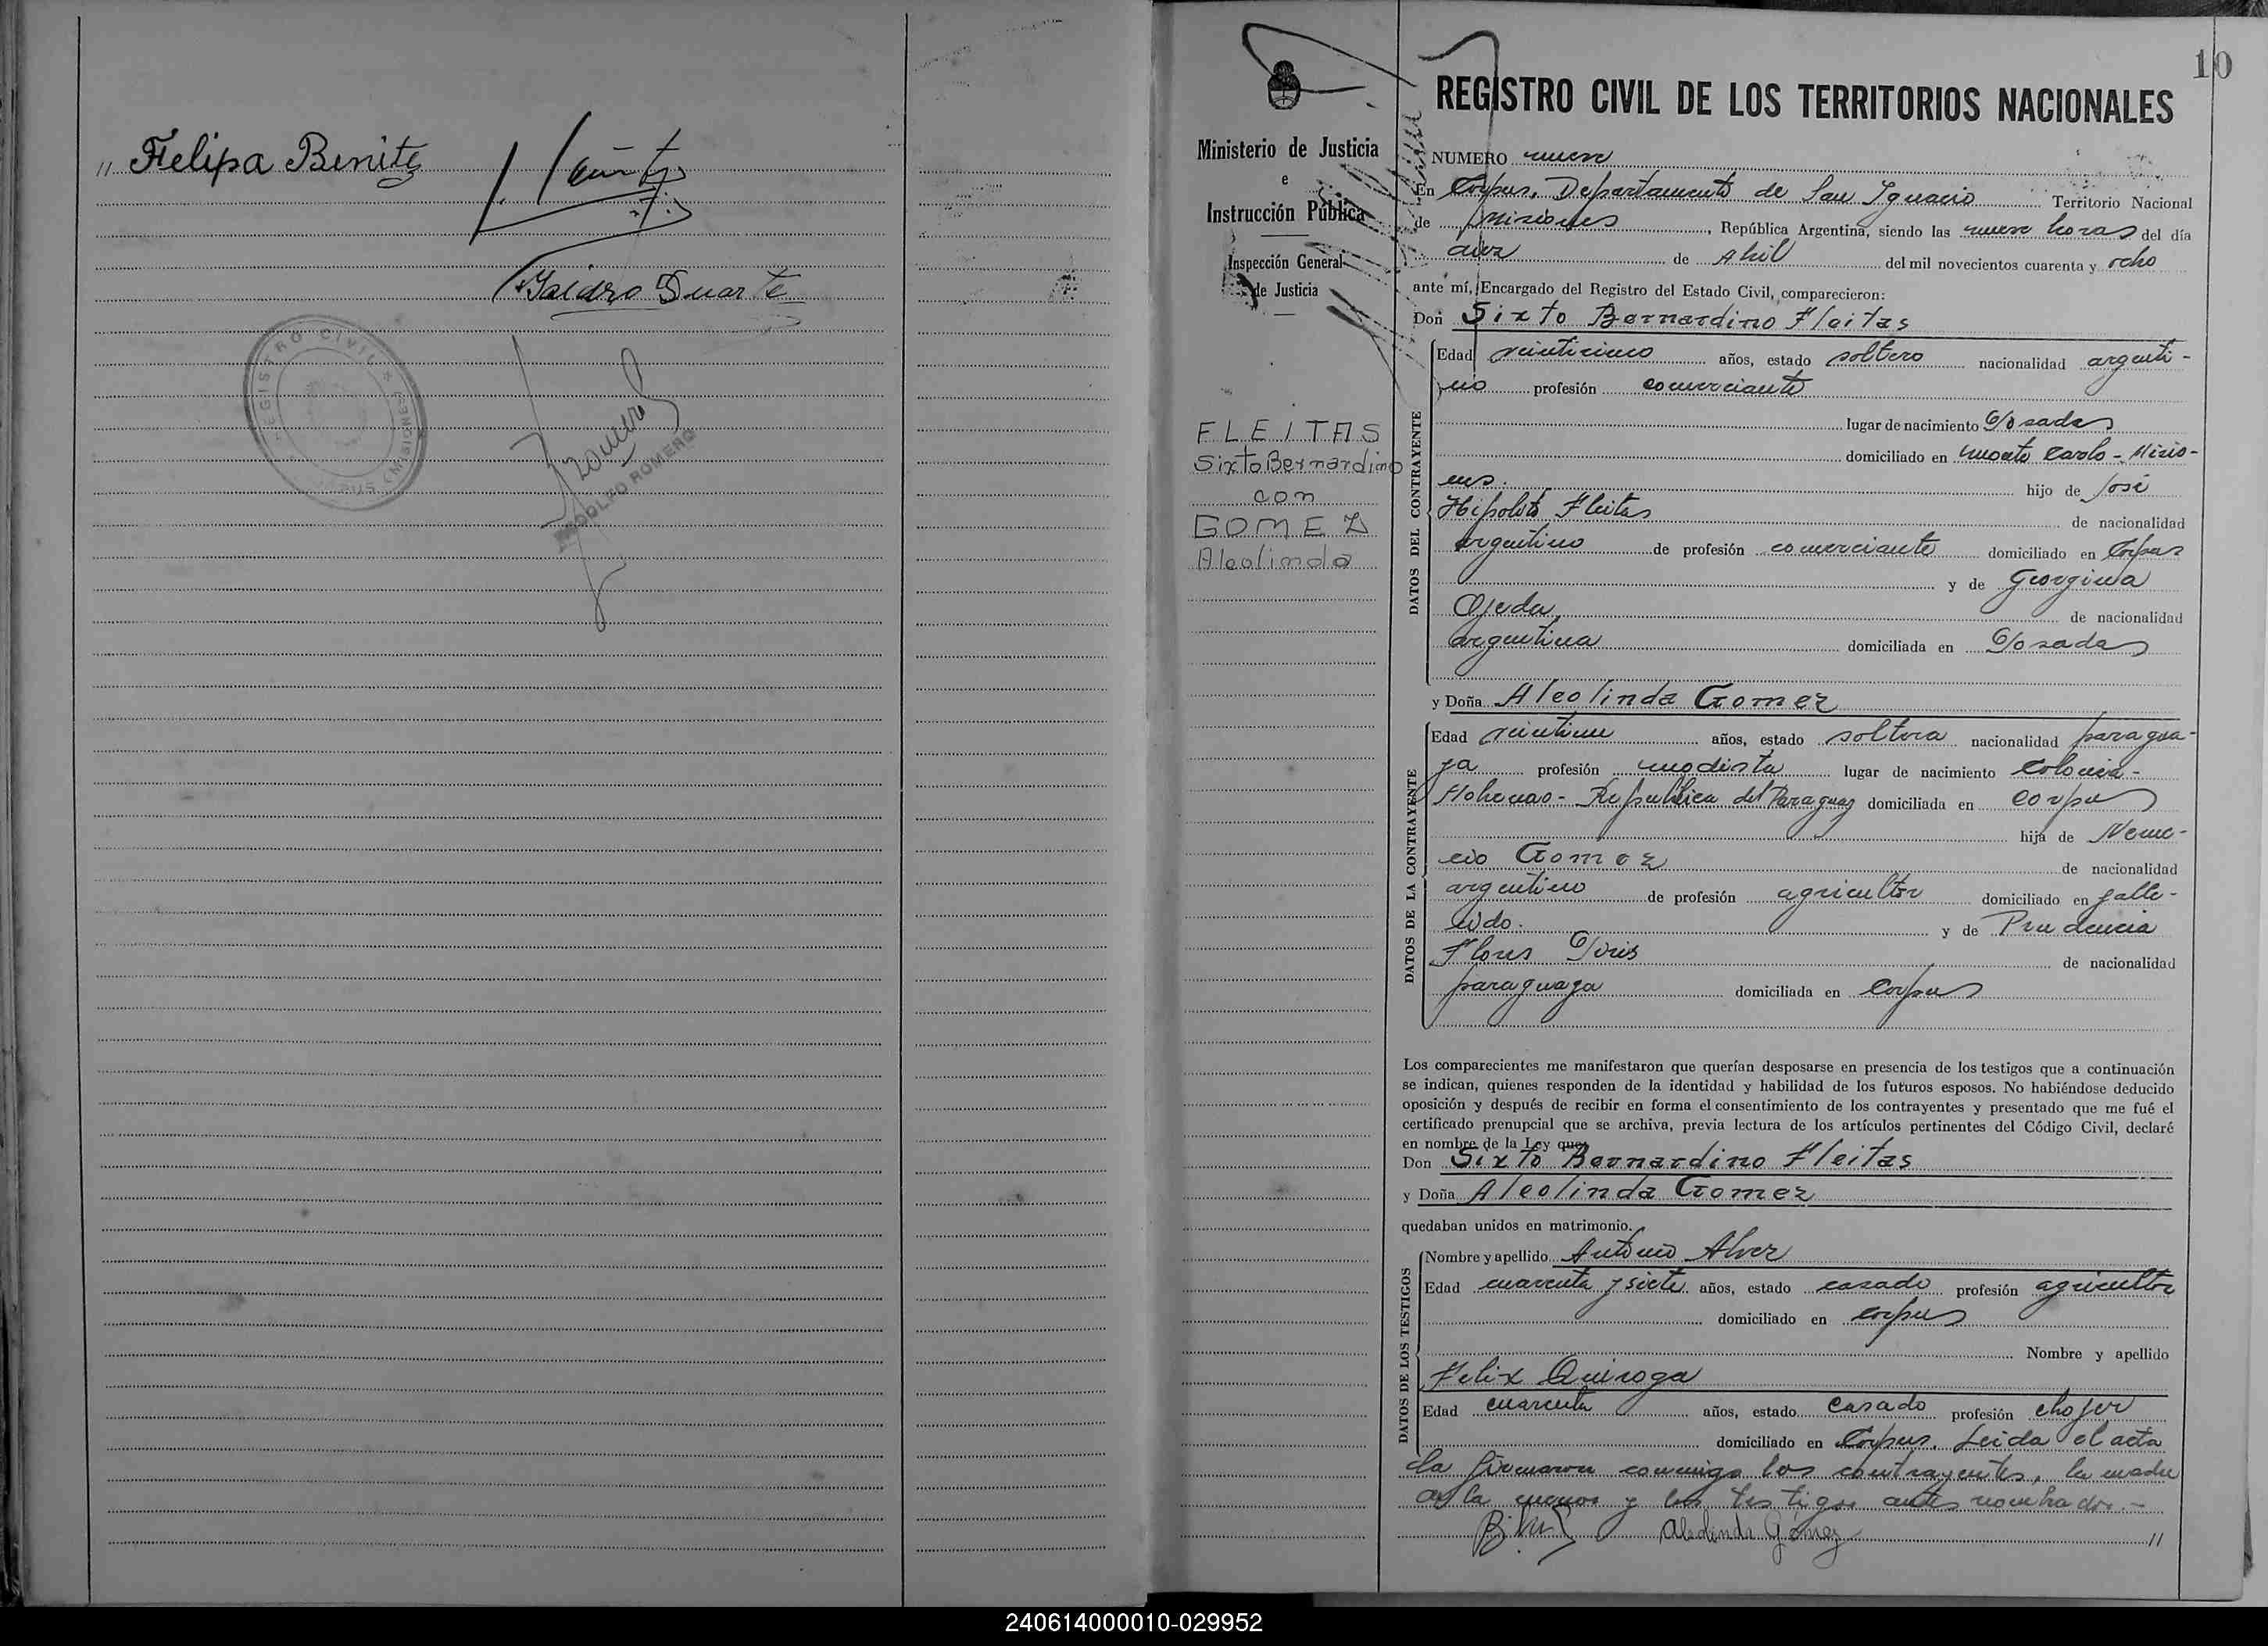 " Felipa Benitez
Isidro Duarte
REGISTRO CIVIL
CORPUS (MISIONES)
Romero
RODOLFO ROMERO
10
REGISTRO CIVIL DE LOS TERRITORIOS NACIONALES
Ministerio de Justicia
e
Instrucción Pública
Inspección General
de Justicia
FLEITAS
Sixto Bernardino
con
GOMEZ
Aleolinda
NUMERO nueve
En Corpus, Departamento de San Ignacio Territorio Nacional
de Misiones, República Argentina, siendo las nueve horas del día
diez de Abril del mil novecientos cuarenta y ocho
ante mí, Encargado del Registro del Estado Civil, comparecieron:
Don Sixto Bernardino Fleitas
DATOS DEL CONTRAYENTE
Edad veinticinco años, estado soltero nacionalidad argenti-
no profesión comerciante
lugar de nacimiento Posadas
domiciliado en Monte Carlo - Misio-
nes. hijo de José
Hipolito Fleitas de nacionalidad
argentino de profesión comerciante domiciliado en Corpus
y de Georgina
Ojeda de nacionalidad
argentina domiciliada en Posadas
y Doña Aleolinda Gomez
DATOS DE LA CONTRAYENTE
Edad veintiun años, estado soltera nacionalidad paragua-
ya profesión modista lugar de nacimiento Colonia -
Hohenao - Republica del Paraguay domiciliada en Corpus
hija de Neme-
cio Gomez de nacionalidad
argentino de profesión agricultor domiciliado en falle-
cido. y de Prudencia
Flores de nacionalidad
paraguaya domiciliada en Corpus
Los comparecientes me manifestaron que querían desposarse en presencia de los testigos que a continuación
se indican, quienes responden de la identidad y habilidad de los futuros esposos. No habiéndose deducido
oposición y después de recibir en forma el consentimiento de los contrayentes y presentado que me fué el
certificado prenupcial que se archiva, previa lectura de los artículos pertinentes del Código Civil, declaré
en nombre de la Ley que,
Don Sixto Bernardino Fleitas
y Doña Aleolinda Gomez
quedaban unidos en matrimonio.
DATOS DE LOS TESTIGOS
Nombre y apellido Antonio Alvez
Edad cuarenta y siete años, estado casado profesión agricultor
domiciliado en Corpus
Nombre y apellido
Felix Quiroga
Edad cuarenta años, estado casado profesión chofer
domiciliado en Corpus. Leida el acta
la firmaron conmigo los contrayentes, la madre
de la menor y los testigos antes nombrados.-
Aleolinda Gómez //
240614000010-029952